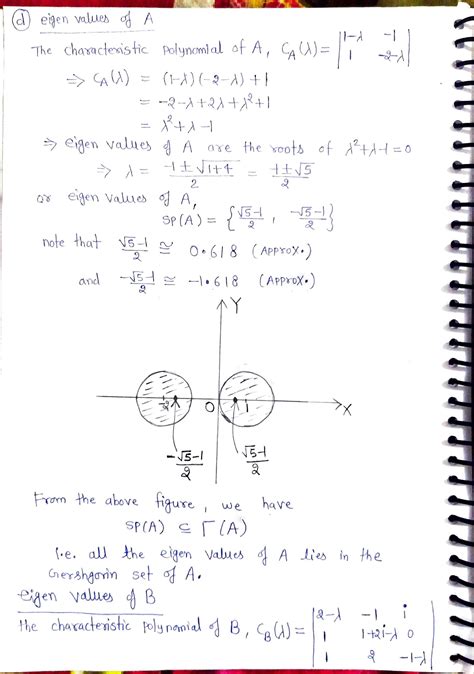 (d) eigen values of A
The characteristic polynomial of A, C_A(λ) = |1-λ -1|
|1 -2-λ|
⇒ C_A(λ) = (1-λ)(-2-λ)+1
= -2-λ+2λ+λ²+1
= λ²+λ-1
⇒ eigen values of A are the roots of λ²+λ-1=0
⇒ λ = (-1±√(1+4))/2 = (-1±√5)/2
or eigen values of A,
SP(A) = { (√5-1)/2 , (-√5-1)/2 }
note that (√5-1)/2 ≅ 0.618 (Approx.)
and (-√5-1)/2 ≅ -1.618 (Approx.)
Y
-2 O 1 X
(-√5-1)/2 (√5-1)/2
From the above figure, we have
SP(A) ⊆ Γ(A)
i.e. all the eigen values of A lies in the
Gershgorin set of A.
eigen values of B
The characteristic polynomial of B, C_B(λ) = |2-λ -1 i|
|1 1+2i-λ 0|
|1 2 -1-λ|